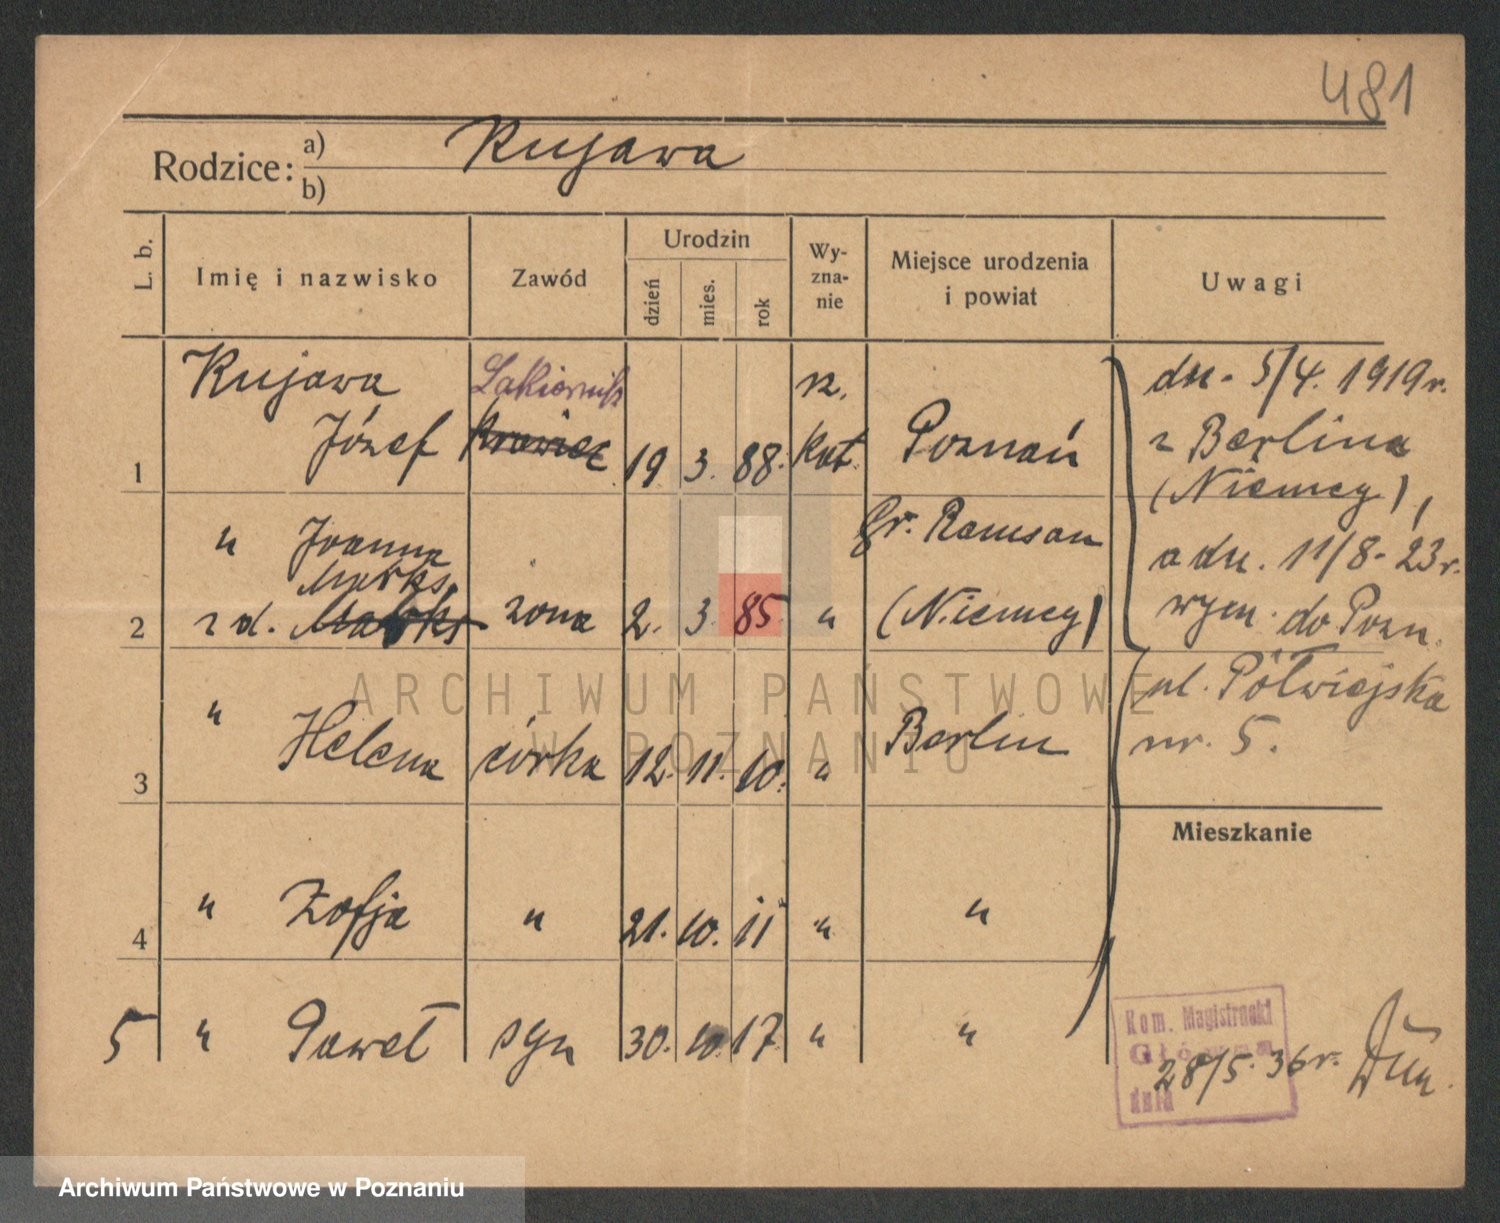 481
Rodzice: a) Kujawa
b)
L. b. Imię i nazwisko Zawód Urodzin dzień mies. rok Wy-zna-nie Miejsce urodzenia i powiat Uwagi
Kujawa Lakiernik rz.
1 Józef Krawiec 19 3. 88. kat. Poznań
" Joanna
Marks
2 z d. Marks żona 2. 3. 85. " Gr. Ramsau (Niemcy)
3 " Helena córka 12. 11. 10. " Berlin
4 " Zofja " 21. 10. 11 " "
5 " Paweł syn 30. 10. 17. " "
dn. 5/4. 1919 r.
z Berlina
(Niemcy),
a dn. 11/8. 23 r.
wym. do Pozn.
ul. Półwiejska
nr. 5.
Mieszkanie
Kom. Magistracki
Główna
dnia
28/5. 36 r.
ARCHIWUM PAŃSTWOWE
W POZNANIU
Archiwum Państwowe w Poznaniu